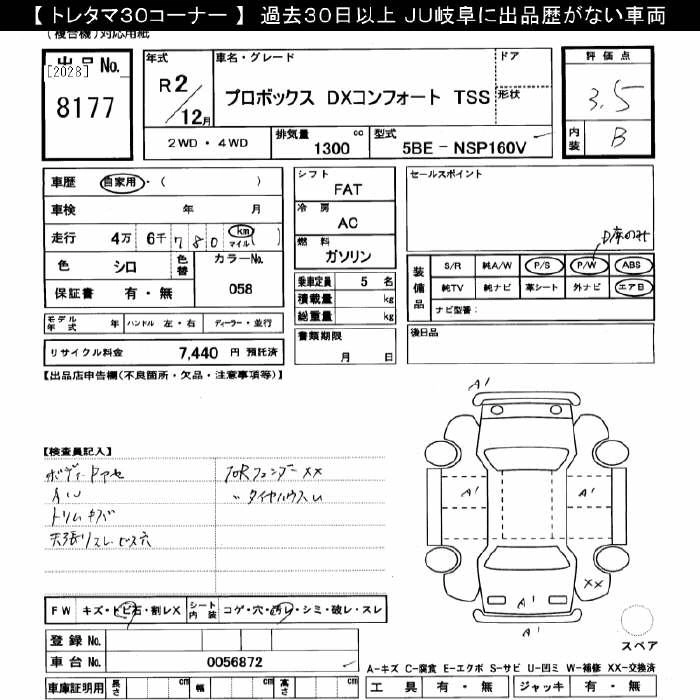 【 トレタマ30コーナー 】 過去30日以上 JU岐阜に出品歴がない車両
(複合機)対応用紙
出品 No.
[2028]
8177
年式
R2/12月
車名・グレード
プロボックス DXコンフォート TSS
ドア
形状
評価点
3.5
内装
B
2WD・4WD
排気量
1300 cc
型式
5BE - NSP160V
車歴 自家用・( )
車検 年 月
走行 4万 6千 7 8 0 km マイル ( )
色 シロ 色替 カラーNo. 058
保証書 有・無
シフト
FAT
冷房
AC
燃料
ガソリン
乗車定員 5 名
積載量 kg
総重量 kg
書類期限
月 日
セールスポイント
D席のみ
装備品
S/R 純A/W P/S P/W ABS
純TV 純ナビ 革シート 外ナビ エアB
ナビ型番:
後日品
モデル年式 年 ハンドル 左・右 ディーラー・並行
リサイクル料金 7,440 円 預託済
【出品店申告欄(不良箇所・欠品・注意事項等)】
【検査員記入】
A U
トリム キズ
天張リスレ ビス穴
FW キズ・トビ石・割レX
シート内装 コゲ・穴・汚レ・シミ・破レ・スレ
登録 No.
車台 No. 0056872
車庫証明用 長さ cm 幅 cm 高さ cm
A'
A'
A'
A'
XX
A'
A'
スペア
A-キズ C-腐食 E-エクボ S-サビ U-凹ミ W-補修 XX-交換済
工具 有・無 ジャッキ 有・無